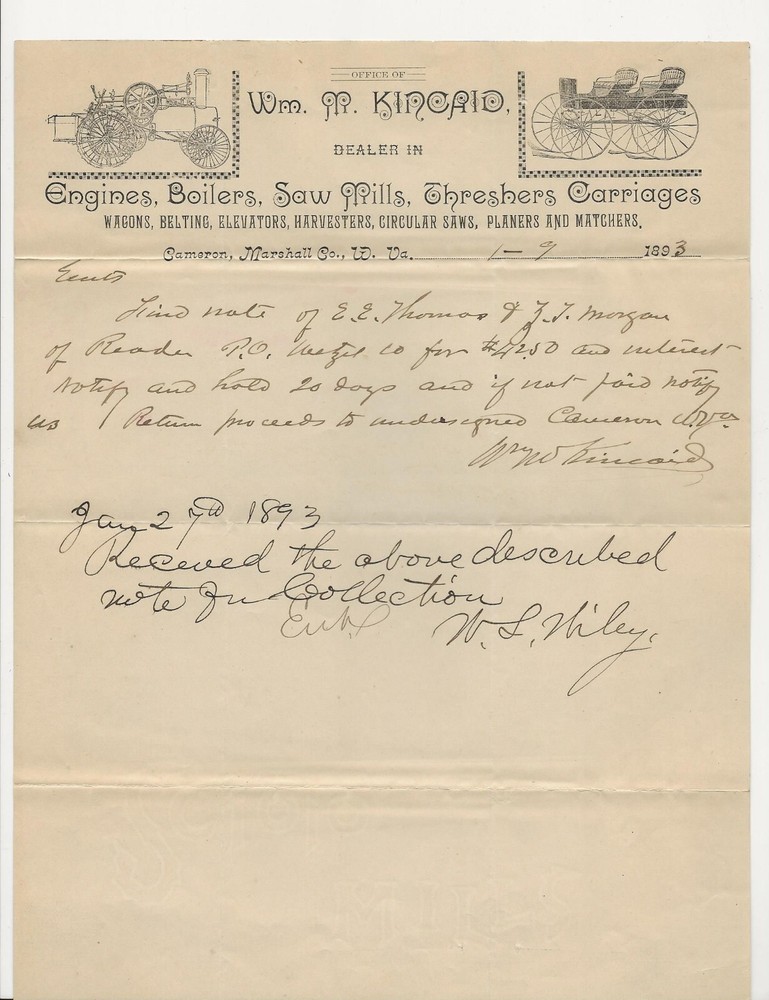 OFFICE OF
Wm. M. KINCAID,
DEALER IN
Engines, Boilers, Saw Mills, Threshers Carriages
WAGONS, BELTING, ELEVATORS, HARVESTERS, CIRCULAR SAWS, PLANERS AND MATCHERS.
Cameron, Marshall Co., W. Va. 1-9 1893
Gents
Find note of E.E. Thomas & Z.T. Morgan
of Reader P.O. Wetzel Co for $42.50 and interest
Notify and hold 20 days and if not paid notify
us Return proceeds to undersigned Cameron W.Va
Wm M Kincaid
Jan 27th 1893
Received the above described
note for Collection
W. S. Wiley.